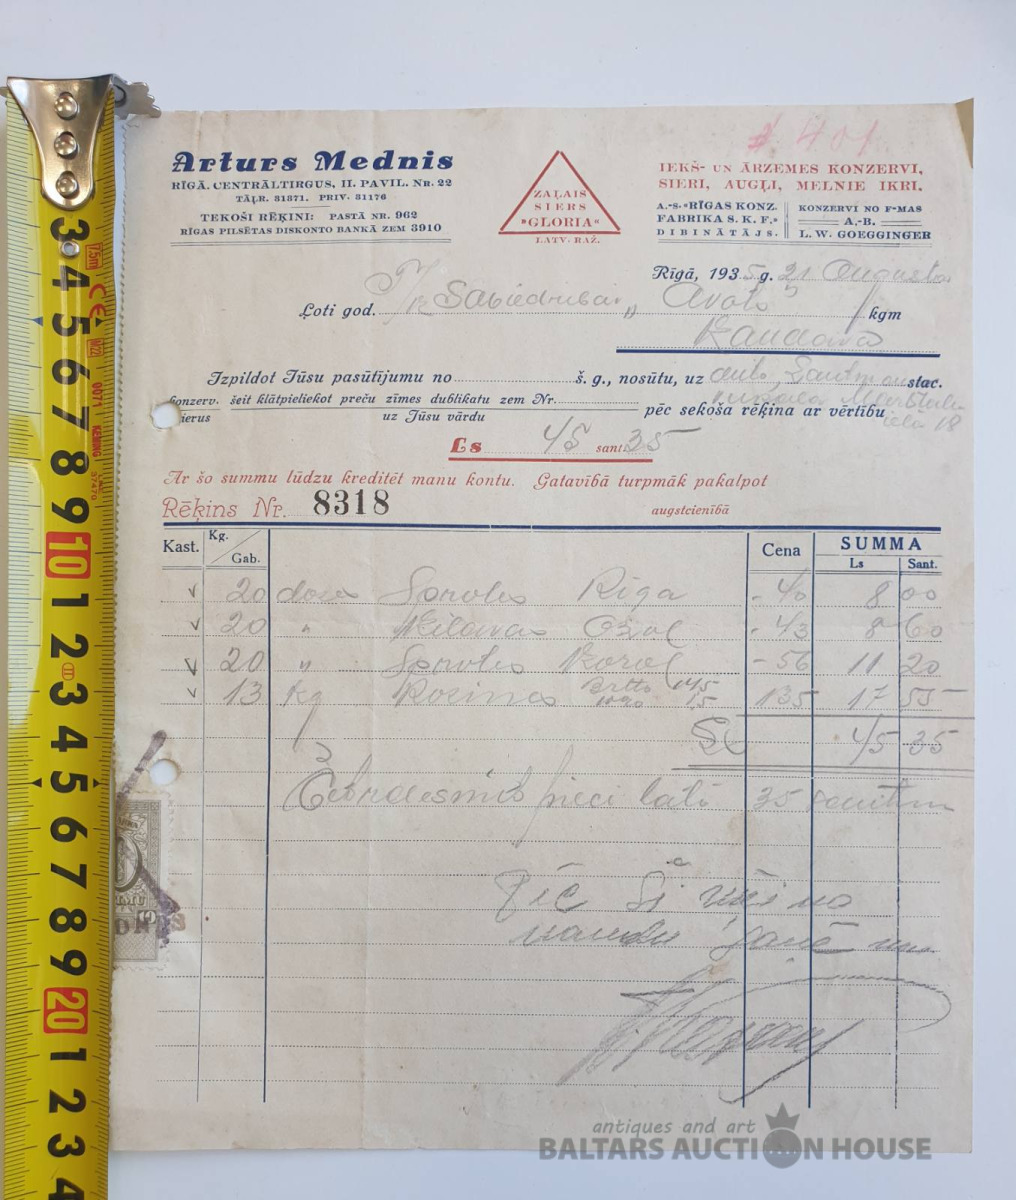 № 401
Arturs Mednis
RĪGĀ. CENTRĀLTIRGUS, II. PAVIL. Nr. 22
TĀLR. 31871. PRIV. 31176
TEKOŠI RĒĶINI: PASTĀ NR. 962
RĪGAS PILSĒTAS DISKONTO BANKĀ ZEM 3910
ZAĻAIS
SIERS
»GLORIA«
LATV. RAŽ.
IEKŠ- UN ĀRZEMES KONZERVI,
SIERI, AUGĻI, MELNIE IKRI.
A.-S. »RĪGAS KONZ.
FABRIKA S. K. F.»
DIBINĀTĀJS.
KONZERVI NO F-MAS
A.-B.
L. W. GOEGGINGER
Rīgā, 1935 g. 21 Augusta
Ļoti god. Sabiedrībai „Avots" kgm
Kandava
Izpildot Jūsu pasūtījumu no š. g., nosūtu, uz auto stac.
konzerv. šeit klātpieliekot preču zīmes dublikatu zem Nr.
sierus uz Jūsu vārdu pēc sekoša rēķina ar vērtību
iela 18
Ls 45 sant. 35
Ar šo summu lūdzu kreditēt manu kontu. Gatavībā turpmāk pakalpot
Rēķins Nr. 8318 augstcienībā
Kast. Kg. Gab. Cena SUMMA
Ls Sant.
20 dose Sprotes Rīga -40 8 00
20 " Ozol -43 8 60
20 " Sprotes -56 11 20
13 kg Rozines Brtto 135 17 55
45 35
Četrdesmit pieci lati 35 santim
Pēc šī
antiques and art
BALTARS AUCTION HOUSE
3 4 5 6 7 8 9 10 1 2 3 4 5 6 7 8 9 20 1 2 3 4